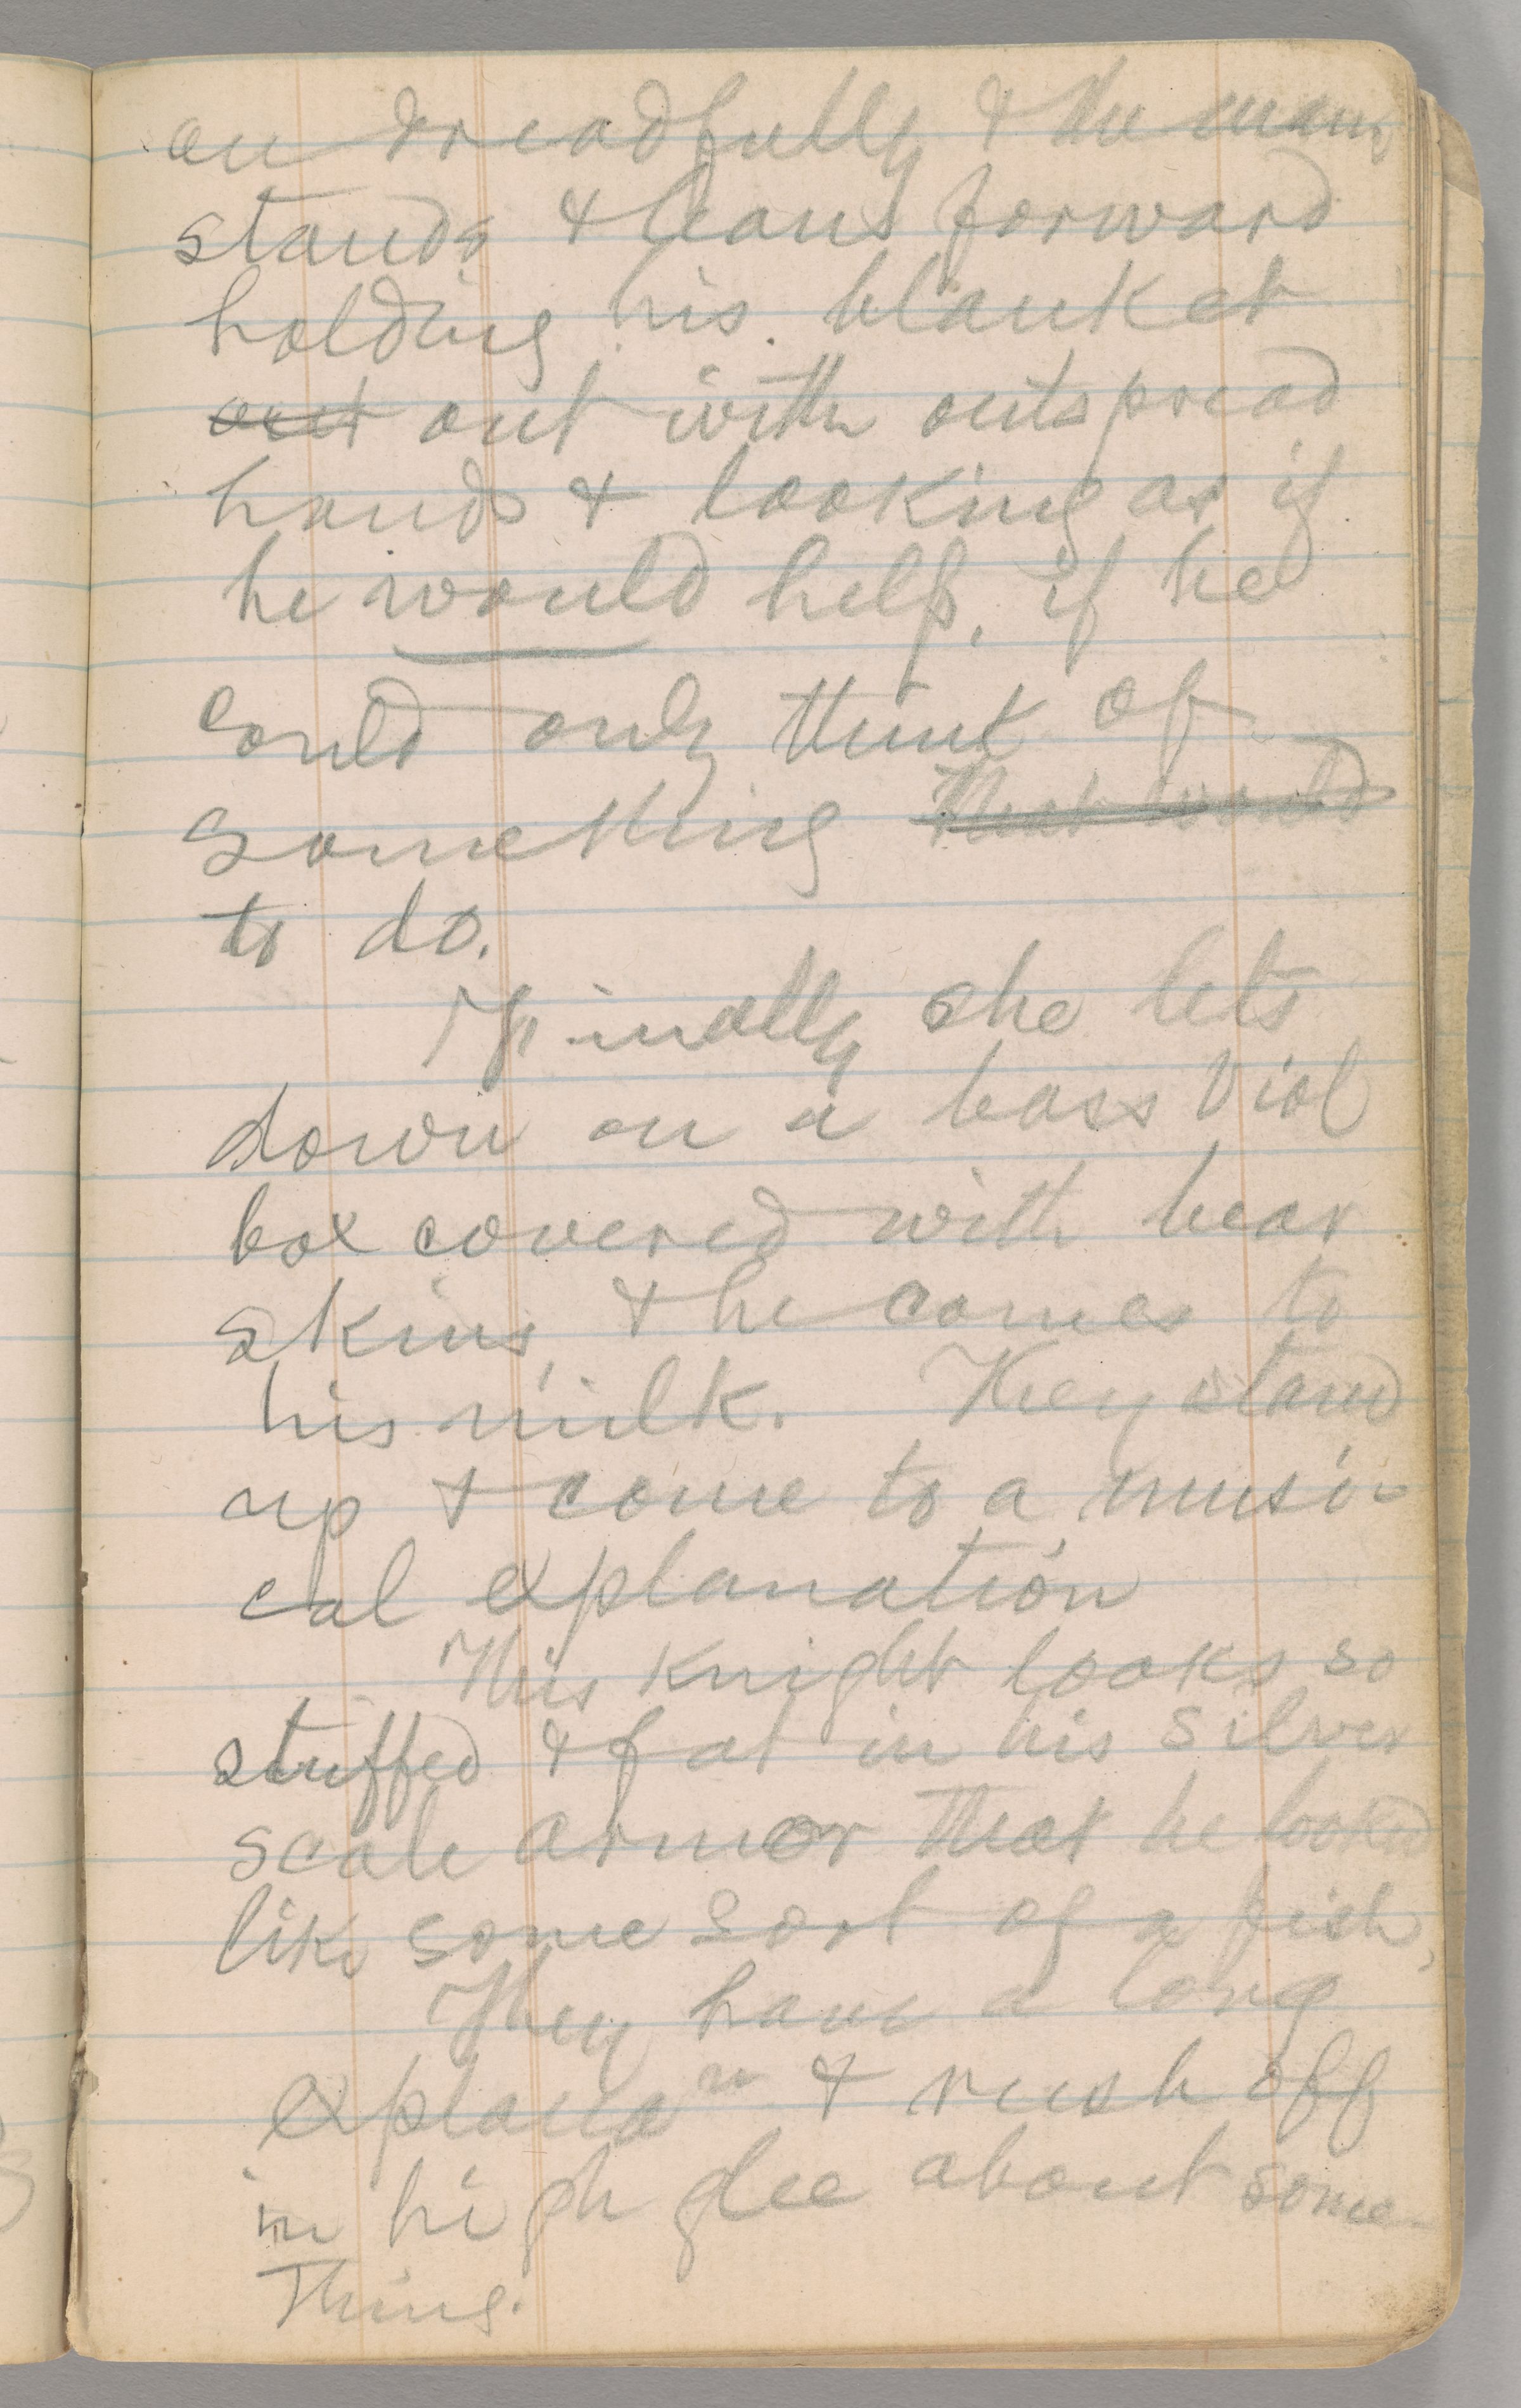 on dreadfully & the man
stands & leans forward
holding his blanket
out out with outspread
hands & looking as if
he would help, if he
could only think of
something that would
to do.
Finally she lets
down on a bass viol
box covered with bear
skins, & he comes to
his milk. They stand
up & come to a musi-
cal explanation
This Knight looks so
stuffed & fat in his silver
scale armor that he looked
like some sort of a fish,
They have a long
explanan & rush off
in high glee about some-
thing.